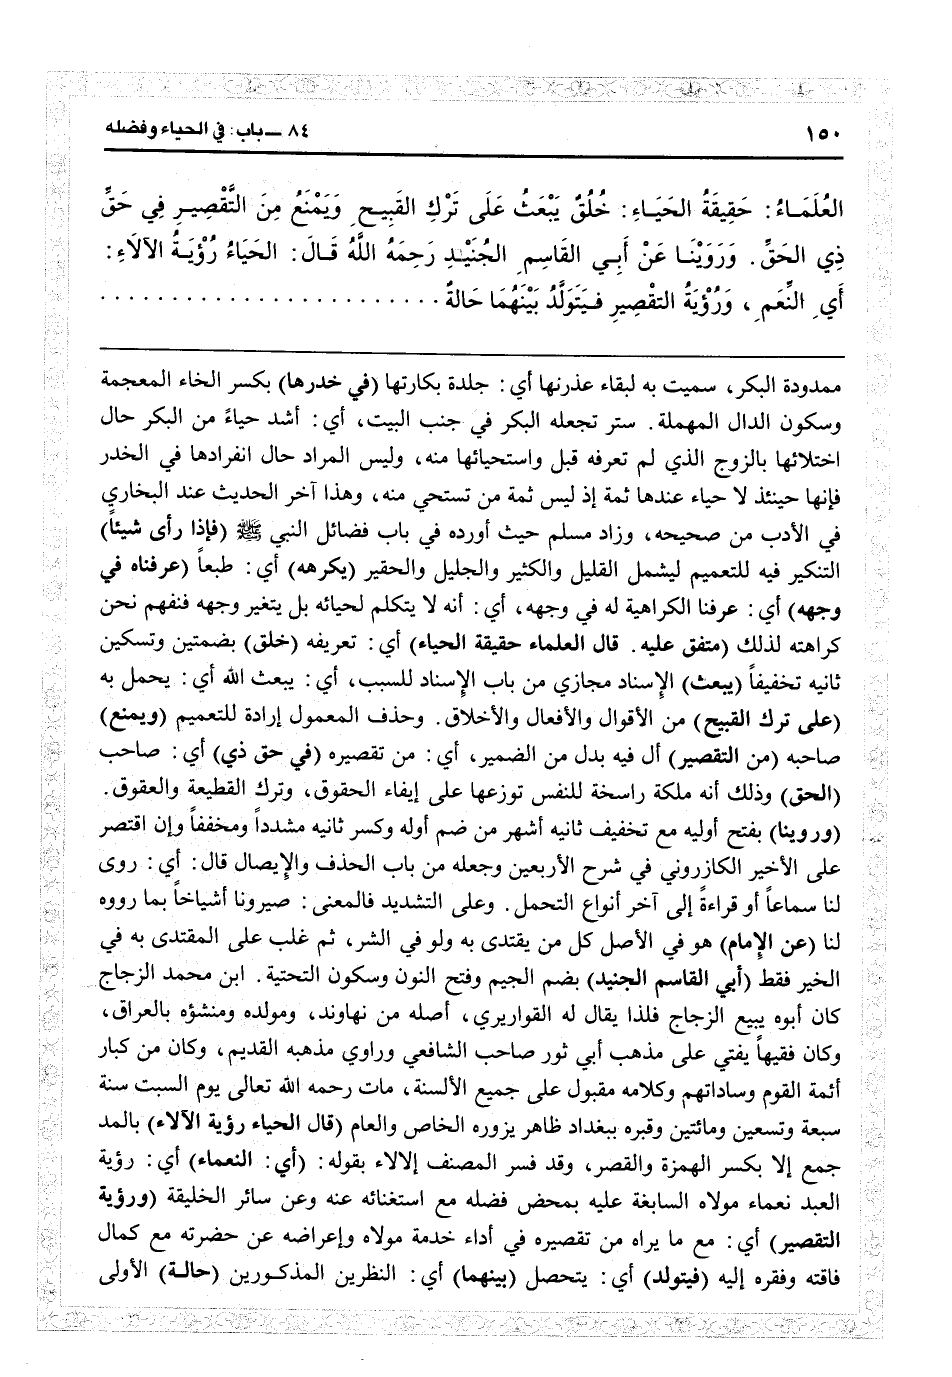 ١٥٠
٨٤ ـ باب: في الحياء وفضله
العُلَمَاءُ: حَقِيقَةُ الحَيَاءِ: خُلُقٌ يَبْعَثُ عَلَى تَرْكِ القَبِيحِ وَيَمْنَعُ مِنَ التَّقْصِيرِ فِي حَقِّ
ذِي الحَقِّ. وَرَوَيْنَا عَنْ أَبِي القَاسِمِ الجُنَيْدِ رَحِمَهُ اللَّهُ قَالَ: الحَيَاءُ رُؤْيَةُ الآلَاءِ:
أَيِ النِّعَمِ، وَرُؤْيَةُ التقْصِيرِ فَيَتَوَلَّدُ بَيْنَهُمَا حَالةٌ . . . . . . . . . . . . . . . . . . . . . . .
ممدودة البكر، سميت به لبقاء عذرتها أي: جلدة بكارتها (في خدرها) بكسر الخاء المعجمة
وسكون الدال المهملة. ستر تجعله البكر في جنب البيت، أي: أشد حياءً من البكر حال
اختلائها بالزوج الذي لم تعرفه قبل واستحيائها منه، وليس المراد حال انفرادها في الخدر
فإنها حينئذ لا حياء عندها ثمة إذ ليس ثمة من تستحي منه، وهذا آخر الحديث عند البخاري
في الأدب من صحيحه، وزاد مسلم حيث أورده في باب فضائل النبي ﷺ (فإذا رأى شيئاً)
التنكير فيه للتعميم ليشمل القليل والكثير والجليل والحقير (يكرهه) أي: طبعاً (عرفناه في
وجهه) أي: عرفنا الكراهية له في وجهه، أي: أنه لا يتكلم لحيائه بل يتغير وجهه فنفهم نحن
كراهته لذلك (متفق عليه. قال العلماء حقيقة الحياء) أي: تعريفه (خلق) بضمتين وتسكين
ثانيه تخفيفاً (يبعث) الإسناد مجازي من باب الإسناد للسبب، أي: يبعث الله أي: يحمل به
(على ترك القبيح) من الأقوال والأفعال والأخلاق. وحذف المعمول إرادة للتعميم (ويمنع)
صاحبه (من التقصير) أل فيه بدل من الضمير، أي: من تقصيره (في حق ذي) أي: صاحب
(الحق) وذلك أنه ملكة راسخة للنفس توزعها على إيفاء الحقوق، وترك القطيعة والعقوق.
(وروينا) بفتح أوليه مع تخفيف ثانيه أشهر من ضم أوله وكسر ثانيه مشدداً ومخففاً وإن اقتصر
على الأخير الكازروني في شرح الأربعين وجعله من باب الحذف والإيصال قال: أي: روى
لنا سماعاً أو قراءةً إلى آخر أنواع التحمل. وعلى التشديد فالمعنى: صيرونا أشياخاً بما رووه
لنا (عن الإمام) هو في الأصل كل من يقتدى به ولو في الشر، ثم غلب على المقتدى به في
الخير فقط (أبي القاسم الجنيد) بضم الجيم وفتح النون وسكون التحتية. ابن محمد الزجاج
كان أبوه يبيع الزجاج فلذا يقال له القواريري، أصله من نهاوند، ومولده ومنشؤه بالعراق،
وكان فقيهاً يفتي على مذهب أبي ثور صاحب الشافعي وراوي مذهبه القديم، وكان من كبار
أئمة القوم وساداتهم وكلامه مقبول على جميع الألسنة، مات رحمه الله تعالى يوم السبت سنة
سبعة وتسعين ومائتين وقبره ببغداد ظاهر يزوره الخاص والعام (قال الحياء رؤية الآلاء) بالمد
جمع إلا بكسر الهمزة والقصر، وقد فسر المصنف إلالاء بقوله: (أي: النعماء) أي: رؤية
العبد نعماء مولاه السابغة عليه بمحض فضله مع استغنائه عنه وعن سائر الخليقة (ورؤية
التقصير) أي: مع ما يراه من تقصيره في أداء خدمة مولاه وإعراضه عن حضرته مع كمال
فاقته وفقره إليه (فيتولد) أي: يتحصل (بينهما) أي: النظرين المذكورين (حالة) الأولى